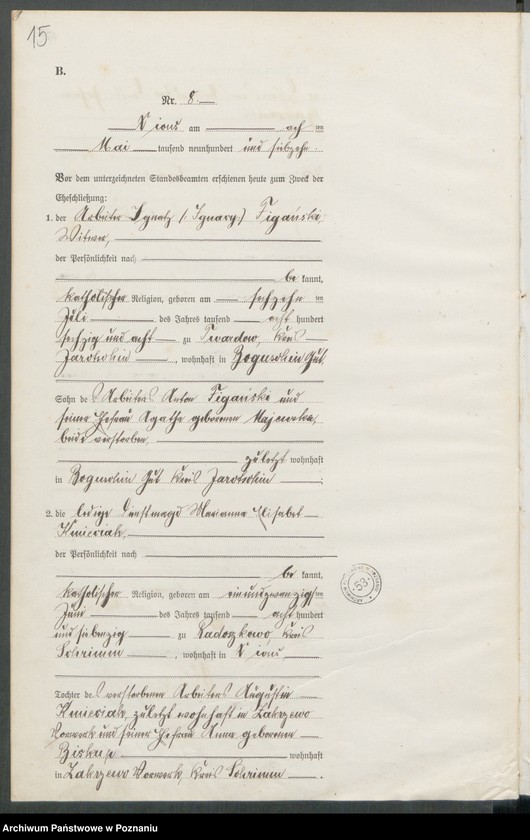 15
B.
Nr. 8.
Xions am acht ten
Mai tausend neunhundert und siebzehn.
Vor dem unterzeichneten Standesbeamten erschienen heute zum Zweck der
Eheschließung:
1. der Arbeiter Ignatz (Ignacy) Figański,
Witwer,
der Persönlichkeit nach
be kannt,
katholischer Religion, geboren am sechzehn ten
Juli des Jahres tausend acht hundert
sechzig und acht zu Twardow, Kreis
Jarotschin, wohnhaft in Gut,
Sohn des Arbeiters Anton Figański und
seiner Ehefrau Agatha geborenen
beide verstorben,
zuletzt wohnhaft
in Gut Kreis Jarotschin;
2. die ledige Dienstmagd Marianna Elisabet
Kmieciak,
der Persönlichkeit nach
be kannt,
katholischer Religion, geboren am einundzwanzigsten
Juni des Jahres tausend acht hundert
und siebenzig zu Radoszkowo, Kreis
Schrimm, wohnhaft in Xions
Tochter des verstorbenen Arbeiters Augustin
Kmieciak, zuletzt wohnhaft in Zakrzewo
Vorwerk und seiner Ehefrau Anna geborenen
wohnhaft
in Zakrzewo Vorwerk, Kreis Schrimm.
53
Archiwum Państwowe w Poznaniu